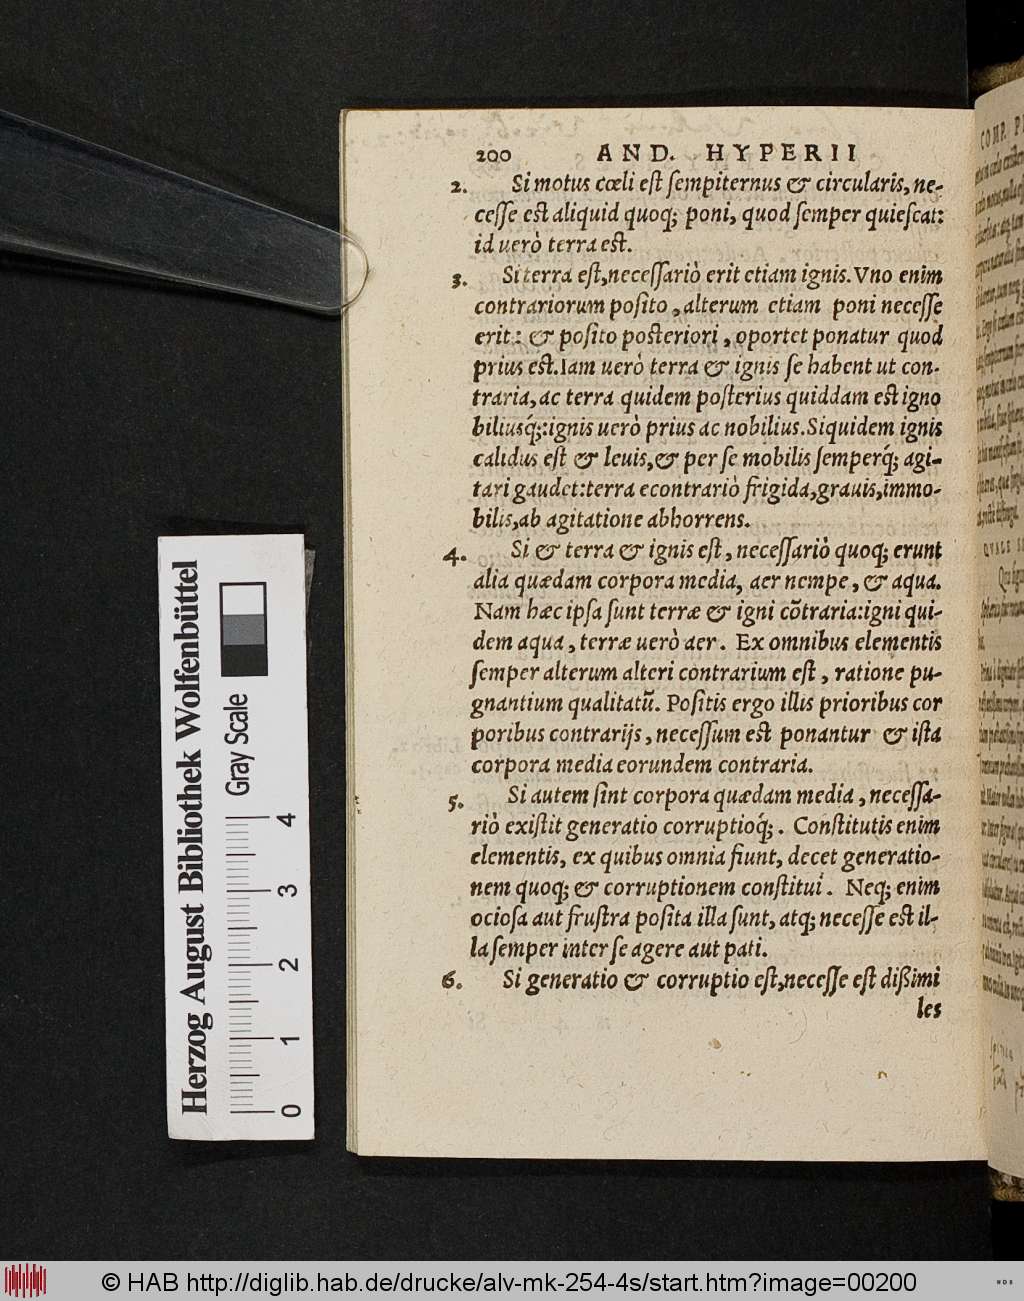 200 AND. HYPERII
2. Si motus cœli est sempiternus & circularis, ne-
cesse est aliquid quoq; poni, quod semper quiescat:
id uerò terra est.
3. Si terra est, necessariò erit etiam ignis. Vno enim
contrariorum posito, alterum etiam poni necesse
erit: & posito posteriori, oportet ponatur quod
prius est. Iam uerò terra & ignis se habent ut con-
traria, ac terra quidem posterius quiddam est igno
biliusq́;: ignis uerò prius ac nobilius. Siquidem ignis
calidus est & leuis, & per se mobilis semperq́; agi-
tari gaudet: terra econtrariò frigida, grauis, immo-
bilis, ab agitatione abhorrens.
4. Si & terra & ignis est, necessariò quoq; erunt
alia quædam corpora media, aer nempe, & aqua.
Nam hæc ipsa sunt terræ & igni cõtraria: igni qui-
dem aqua, terræ uerò aer. Ex omnibus elementis
semper alterum alteri contrarium est, ratione pu-
gnantium qualitatũ. Positis ergo illis prioribus cor
poribus contrarijs, necessum est ponantur & ista
corpora media eorundem contraria.
5. Si autem sint corpora quædam media, necessa-
riò existit generatio corruptioq́;. Constitutis enim
elementis, ex quibus omnia fiunt, decet generatio-
nem quoq; & corruptionem constitui. Neq; enim
ociosa aut frustra posita illa sunt, atq; necesse est il-
la semper inter se agere aut pati.
6. Si generatio & corruptio est, necesse est dißimi
les
Herzog August Bibliothek Wolfenbüttel
Gray Scale
0 1 2 3 4
© HAB http://diglib.hab.de/drucke/alv-mk-254-4s/start.htm?image=00200